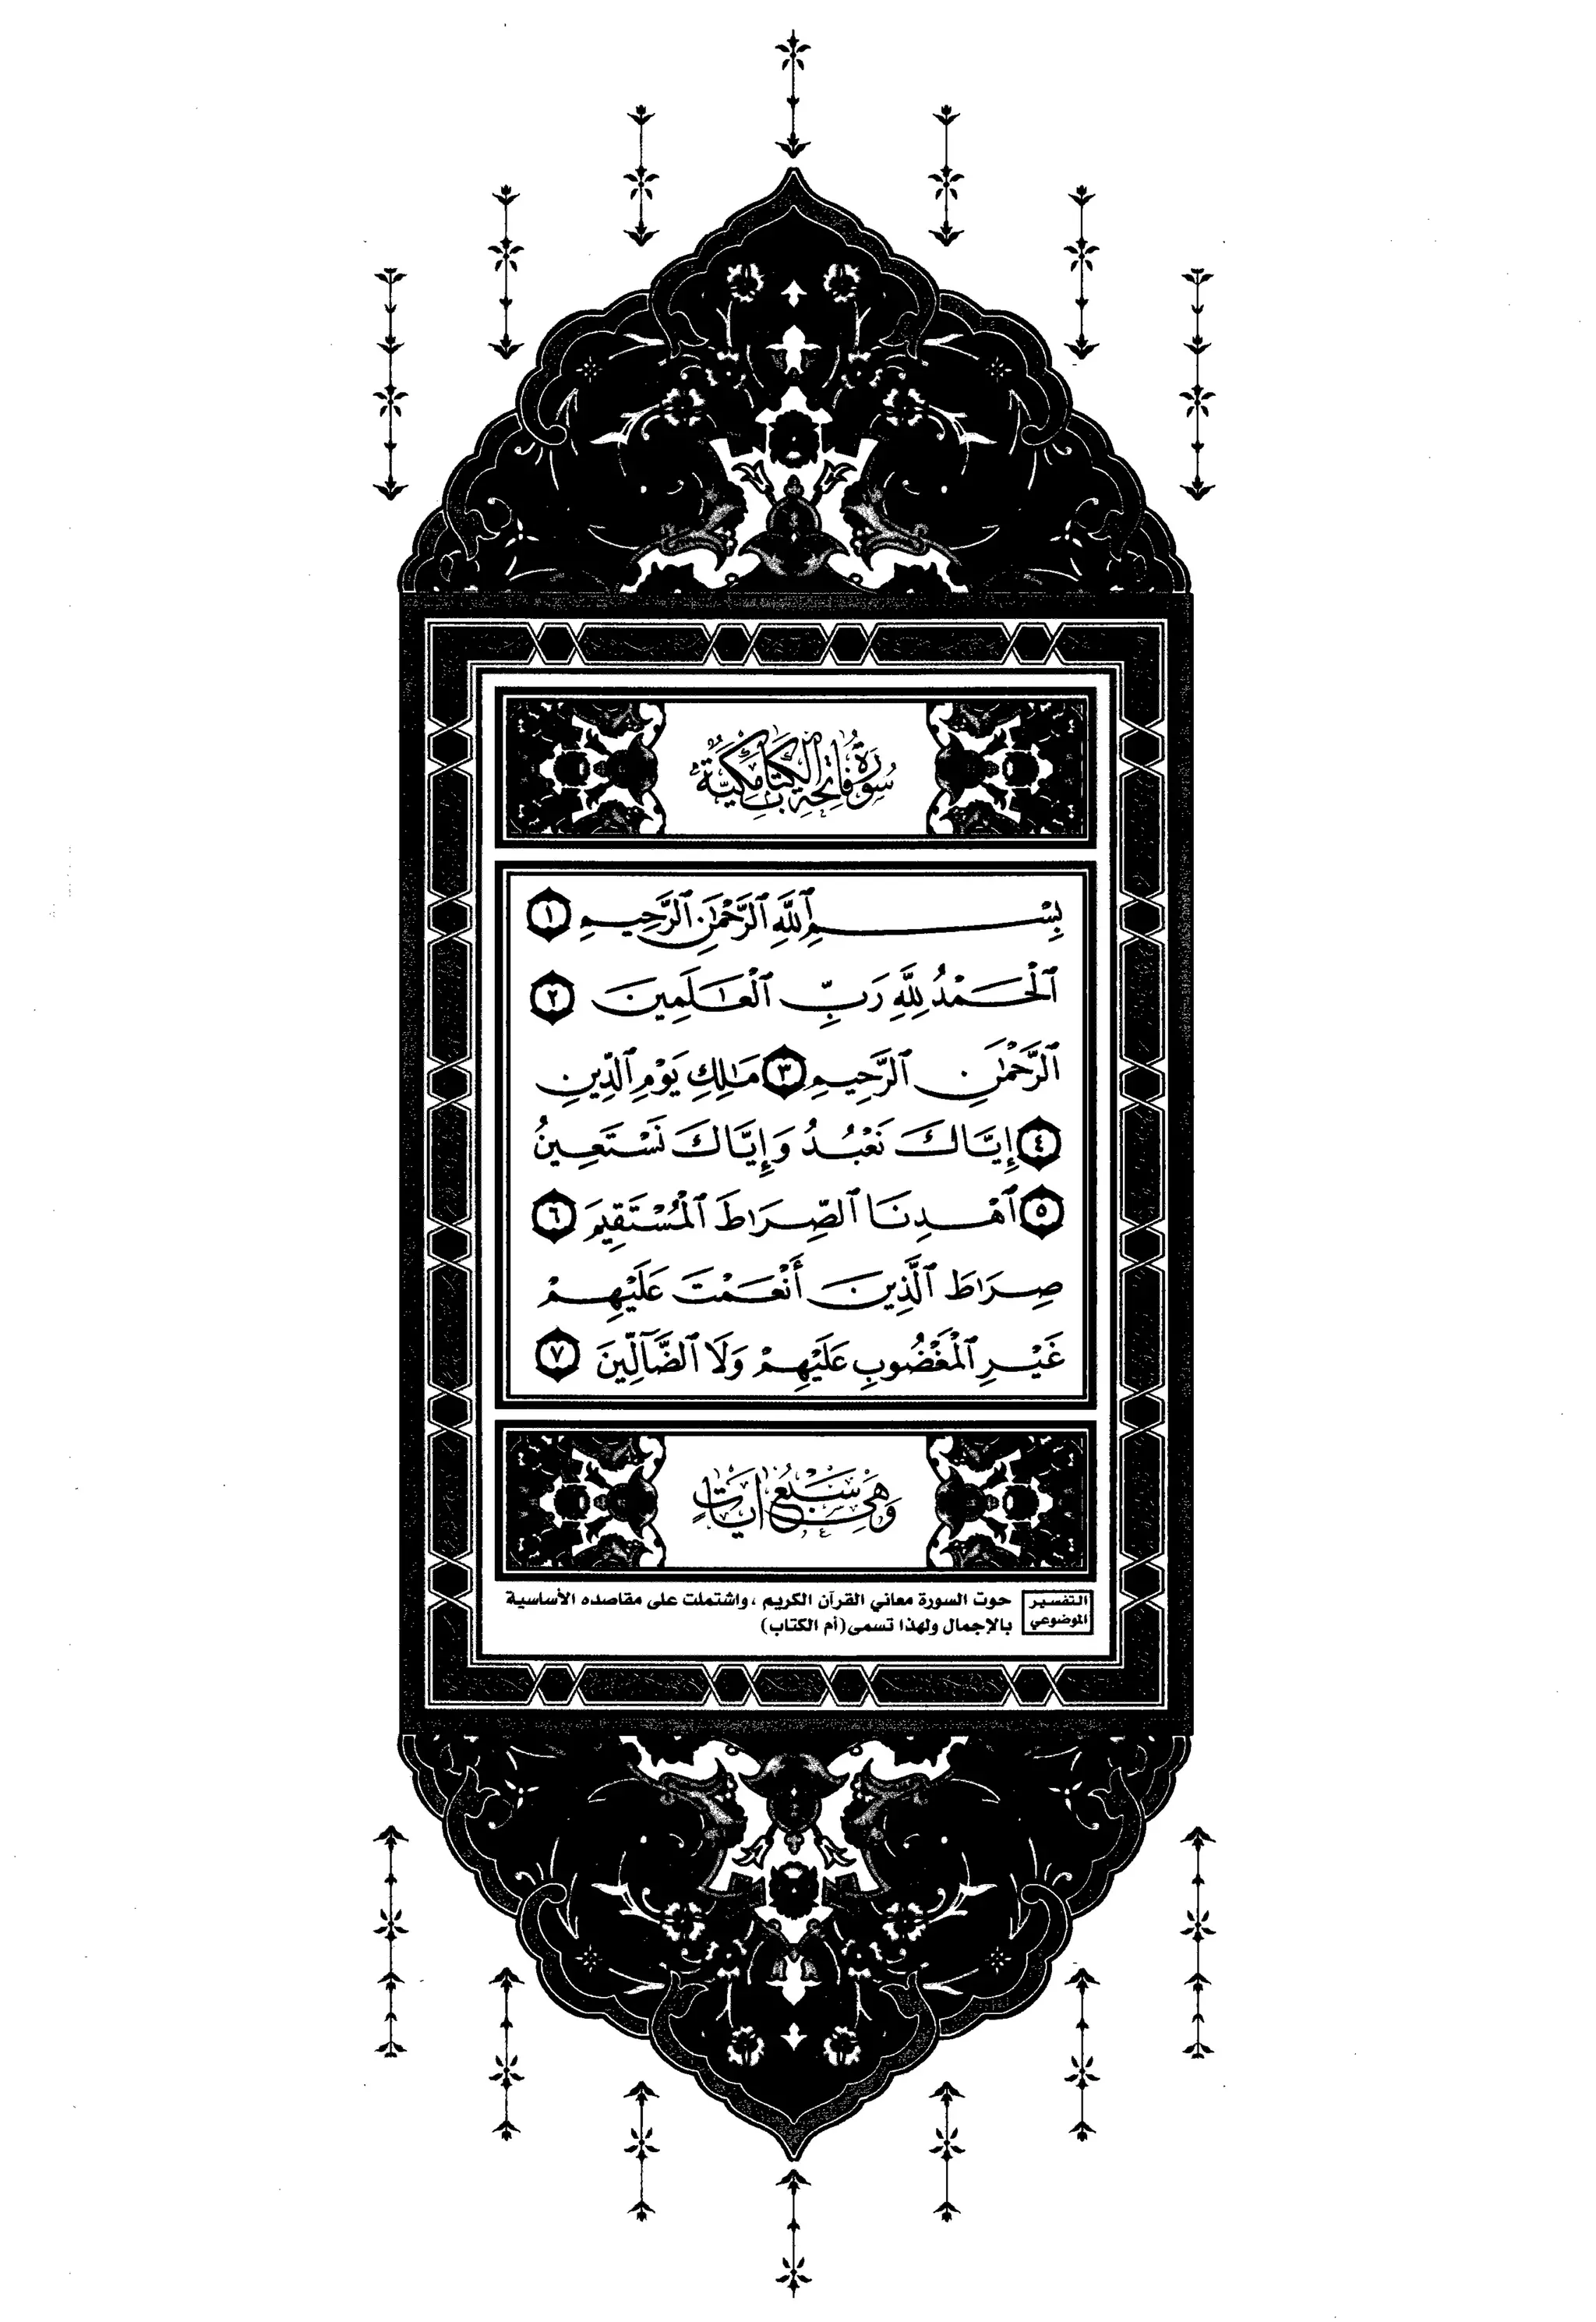 سُورَةُ فَاتِحَةِ الْكِتَابِ مَكِّيَّةٌ
بِسْمِ ٱللَّهِ ٱلرَّحْمَٰنِ ٱلرَّحِيمِ ١
ٱلْحَمْدُ لِلَّهِ رَبِّ ٱلْعَٰلَمِينَ ٢
ٱلرَّحْمَٰنِ ٱلرَّحِيمِ ٣ مَٰلِكِ يَوْمِ ٱلدِّينِ
٤ إِيَّاكَ نَعْبُدُ وَإِيَّاكَ نَسْتَعِينُ
٥ ٱهْدِنَا ٱلصِّرَٰطَ ٱلْمُسْتَقِيمَ ٦
صِرَٰطَ ٱلَّذِينَ أَنْعَمْتَ عَلَيْهِمْ
غَيْرِ ٱلْمَغْضُوبِ عَلَيْهِمْ وَلَا ٱلضَّآلِّينَ ٧
وَهِيَ سَبْعُ آيَاتٍ
التفسير الموضوعي
حوت السورة معاني القرآن الكريم ، واشتملت على مقاصده الأساسية
بالإجمال ولهذا تسمى (أم الكتاب)